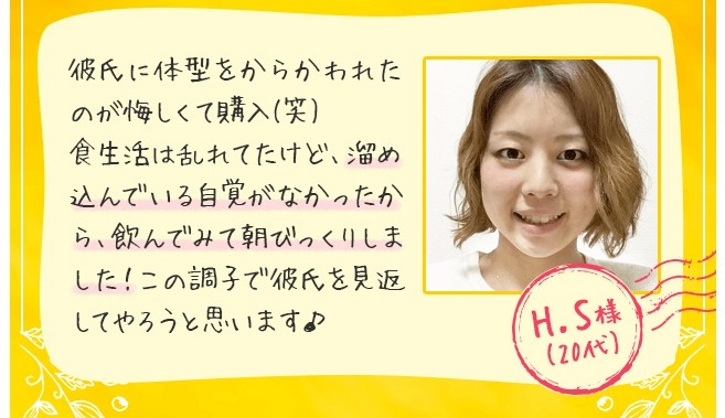 彼氏に体型をからかわれた
のが悔しくて購入(笑)
食生活は乱れてたけど、溜め
込んでいる自覚がなかったか
ら、飲んでみて朝びっくりしま
した!この調子で彼氏を見返
してやろうと思います♪
H.S様
(20代)